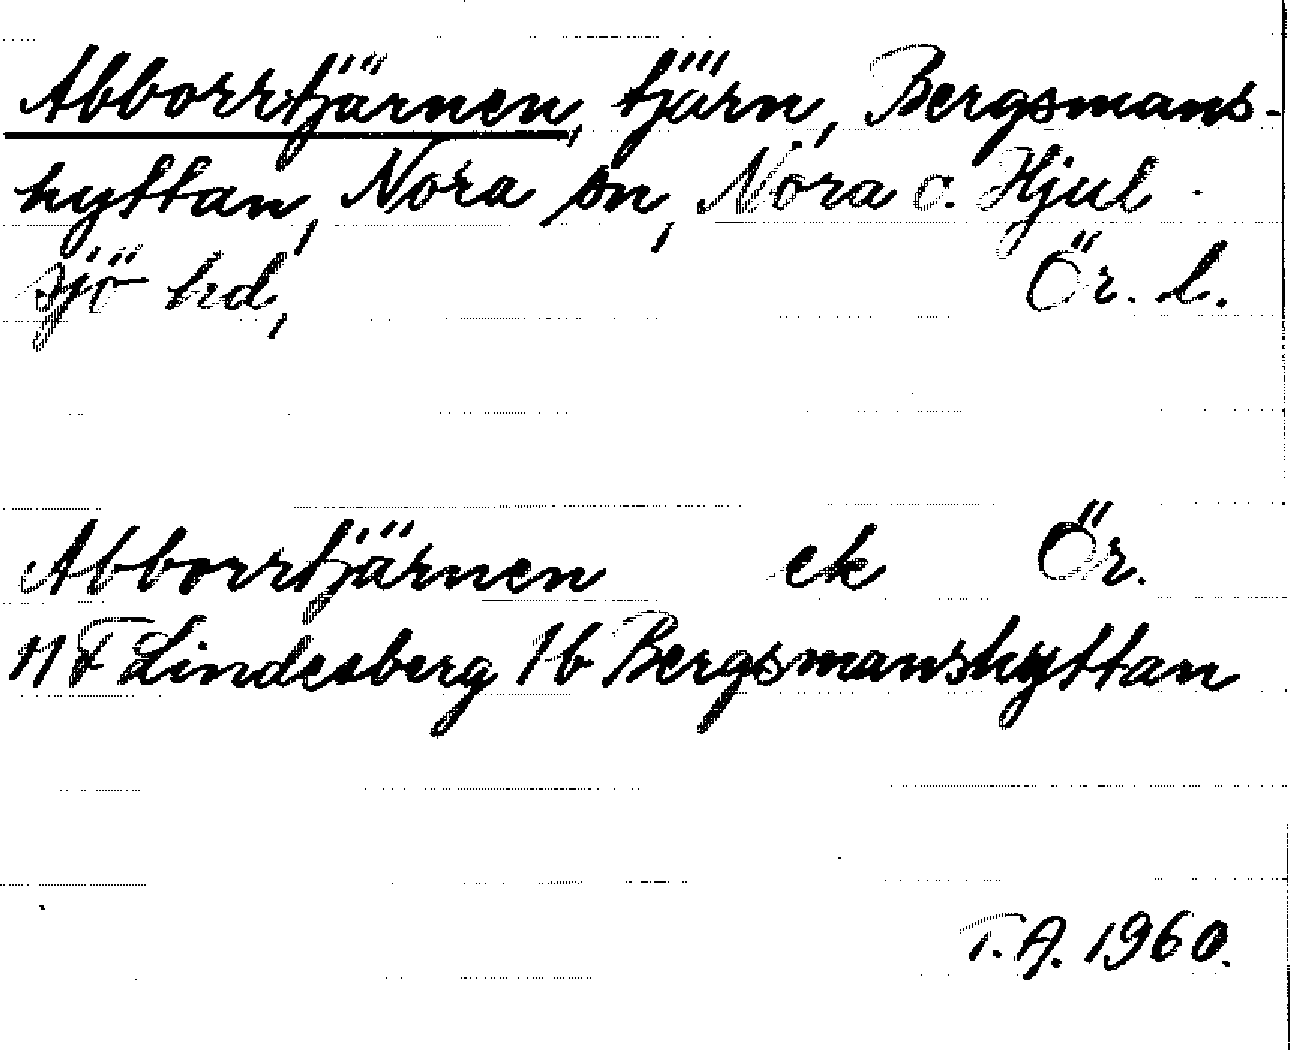 Abborrtjärnen, tjärn, Bergsmans-
hyttan, Nora sn, Nora o. Hjul
sjö hd, Ör. l.
Abborrtjärnen ek Ör.
11 F Lindesberg 1b Bergsmanshyttan
T.A. 1960.